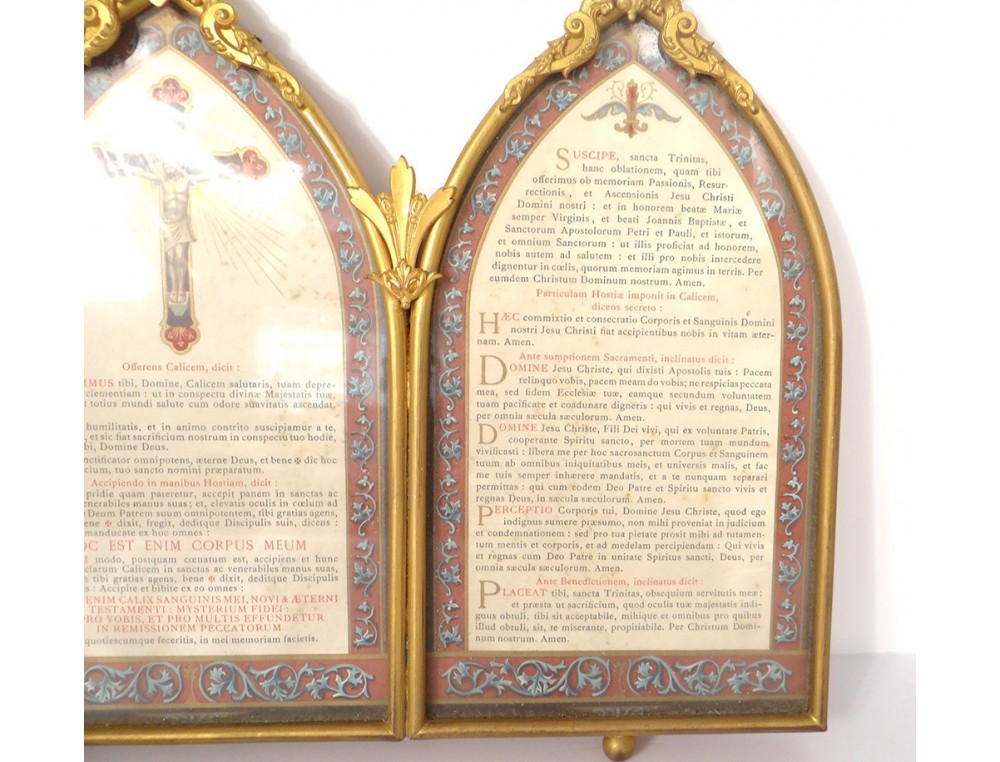 Offerens Calicem, dicit :
IMUS tibi, Domine, Calicem salutaris, tuam depre-
clementiam : ut in conspectu divinæ Majestatis tuæ,
t totius mundi salute cum odore suavitatis ascendat.
humilitatis, et in animo contrito suscipiamur a te,
, et sic fiat sacrificium nostrum in conspectu tuo hodie,
bi, Domine Deus.
nctificator omnipotens, æterne Deus, et bene ✠ dic hoc
cium, tuo sancto nomini præparatum.
Accipiendo in manibus Hostiam, dicit :
pridie quam pateretur, accepit panem in sanctas ac
venerabiles manus suas; et, elevatis oculis in cœlum ad
Deum Patrem suum omnipotentem, tibi gratias agens,
ene ✠ dixit, fregit, deditque Discipulis suis, dicens :
manducate ex hoc omnes :
OC EST ENIM CORPUS MEUM
modo, postquam cœnatum est, accipiens et hunc
clarum Calicem in sanctas ac venerabiles manus suas,
tibi gratias agens, bene ✠ dixit, deditque Discipulis
s : Accipite et bibite ex eo omnes :
ENIM CALIX SANGUINIS MEI, NOVI & ÆTERNI
TESTAMENTI : MYSTERIUM FIDEI :
PRO VOBIS, ET PRO MULTIS EFFUNDETUR
IN REMISSIONEM PECCATORUM
quotiescumque feceritis, in mei memoriam facietis.
SUSCIPE, sancta Trinitas,
hanc oblationem, quam tibi
offerimus ob memoriam Passionis, Resur-
rectionis, et Ascensionis Jesu Christi
Domini nostri : et in honorem beatæ Mariæ
semper Virginis, et beati Joannis Baptistæ, et
Sanctorum Apostolorum Petri et Pauli, et istorum,
et omnium Sanctorum : ut illis proficiat ad honorem,
nobis autem ad salutem : et illi pro nobis intercedere
dignentur in cœlis, quorum memoriam agimus in terris. Per
eumdem Christum Dominum nostrum. Amen.
Particulam Hostiæ imponit in Calicem,
dicens secreto :
HÆC commixtio et consecratio Corporis et Sanguinis Domini
nostri Jesu Christi fiat accipientibus nobis in vitam æter-
nam. Amen.
Ante sumptionem Sacramenti, inclinatus dicit :
DOMINE Jesu Christe, qui dixisti Apostolis tuis : Pacem
relinquo vobis, pacem meam do vobis; ne respicias peccata
mea, sed fidem Ecclesiæ tuæ, eamque secundum voluntatem
tuam pacificare et coadunare digneris : qui vivis et regnas, Deus,
per omnia sæcula sæculorum. Amen.
DOMINE Jesu Christe, Fili Dei vivi, qui ex voluntate Patris,
cooperante Spiritu sancto, per mortem tuam mundum
vivificasti : libera me per hoc sacrosanctum Corpus et Sanguinem
tuum ab omnibus iniquitatibus meis, et universis malis, et fac
me tuis semper inhærere mandatis, et a te nunquam separari
permittas : qui cum eodem Deo Patre et Spiritu sancto vivis et
regnas Deus, in sæcula sæculorum. Amen.
PERCEPTIO Corporis tui, Domine Jesu Christe, quod ego
indignus sumere præsumo, non mihi proveniat in judicium
et condemnationem : sed pro tua pietate prosit mihi ad tutamen-
tum mentis et corporis, et ad medelam percipiendam : Qui vivis
et regnas cum Deo Patre in unitate Spiritus sancti, Deus, per
omnia sæcula sæculorum. Amen.
Ante Benedictionem, inclinatus dicit :
PLACEAT tibi, sancta Trinitas, obsequium servitutis meæ;
et præsta ut sacrificium, quod oculis tuæ majestatis indi-
gnus obtuli, tibi sit acceptabile, mihique et omnibus pro quibus
illud obtuli, sit, te miserante, propitiabile. Per Christum Domi-
num nostrum. Amen.